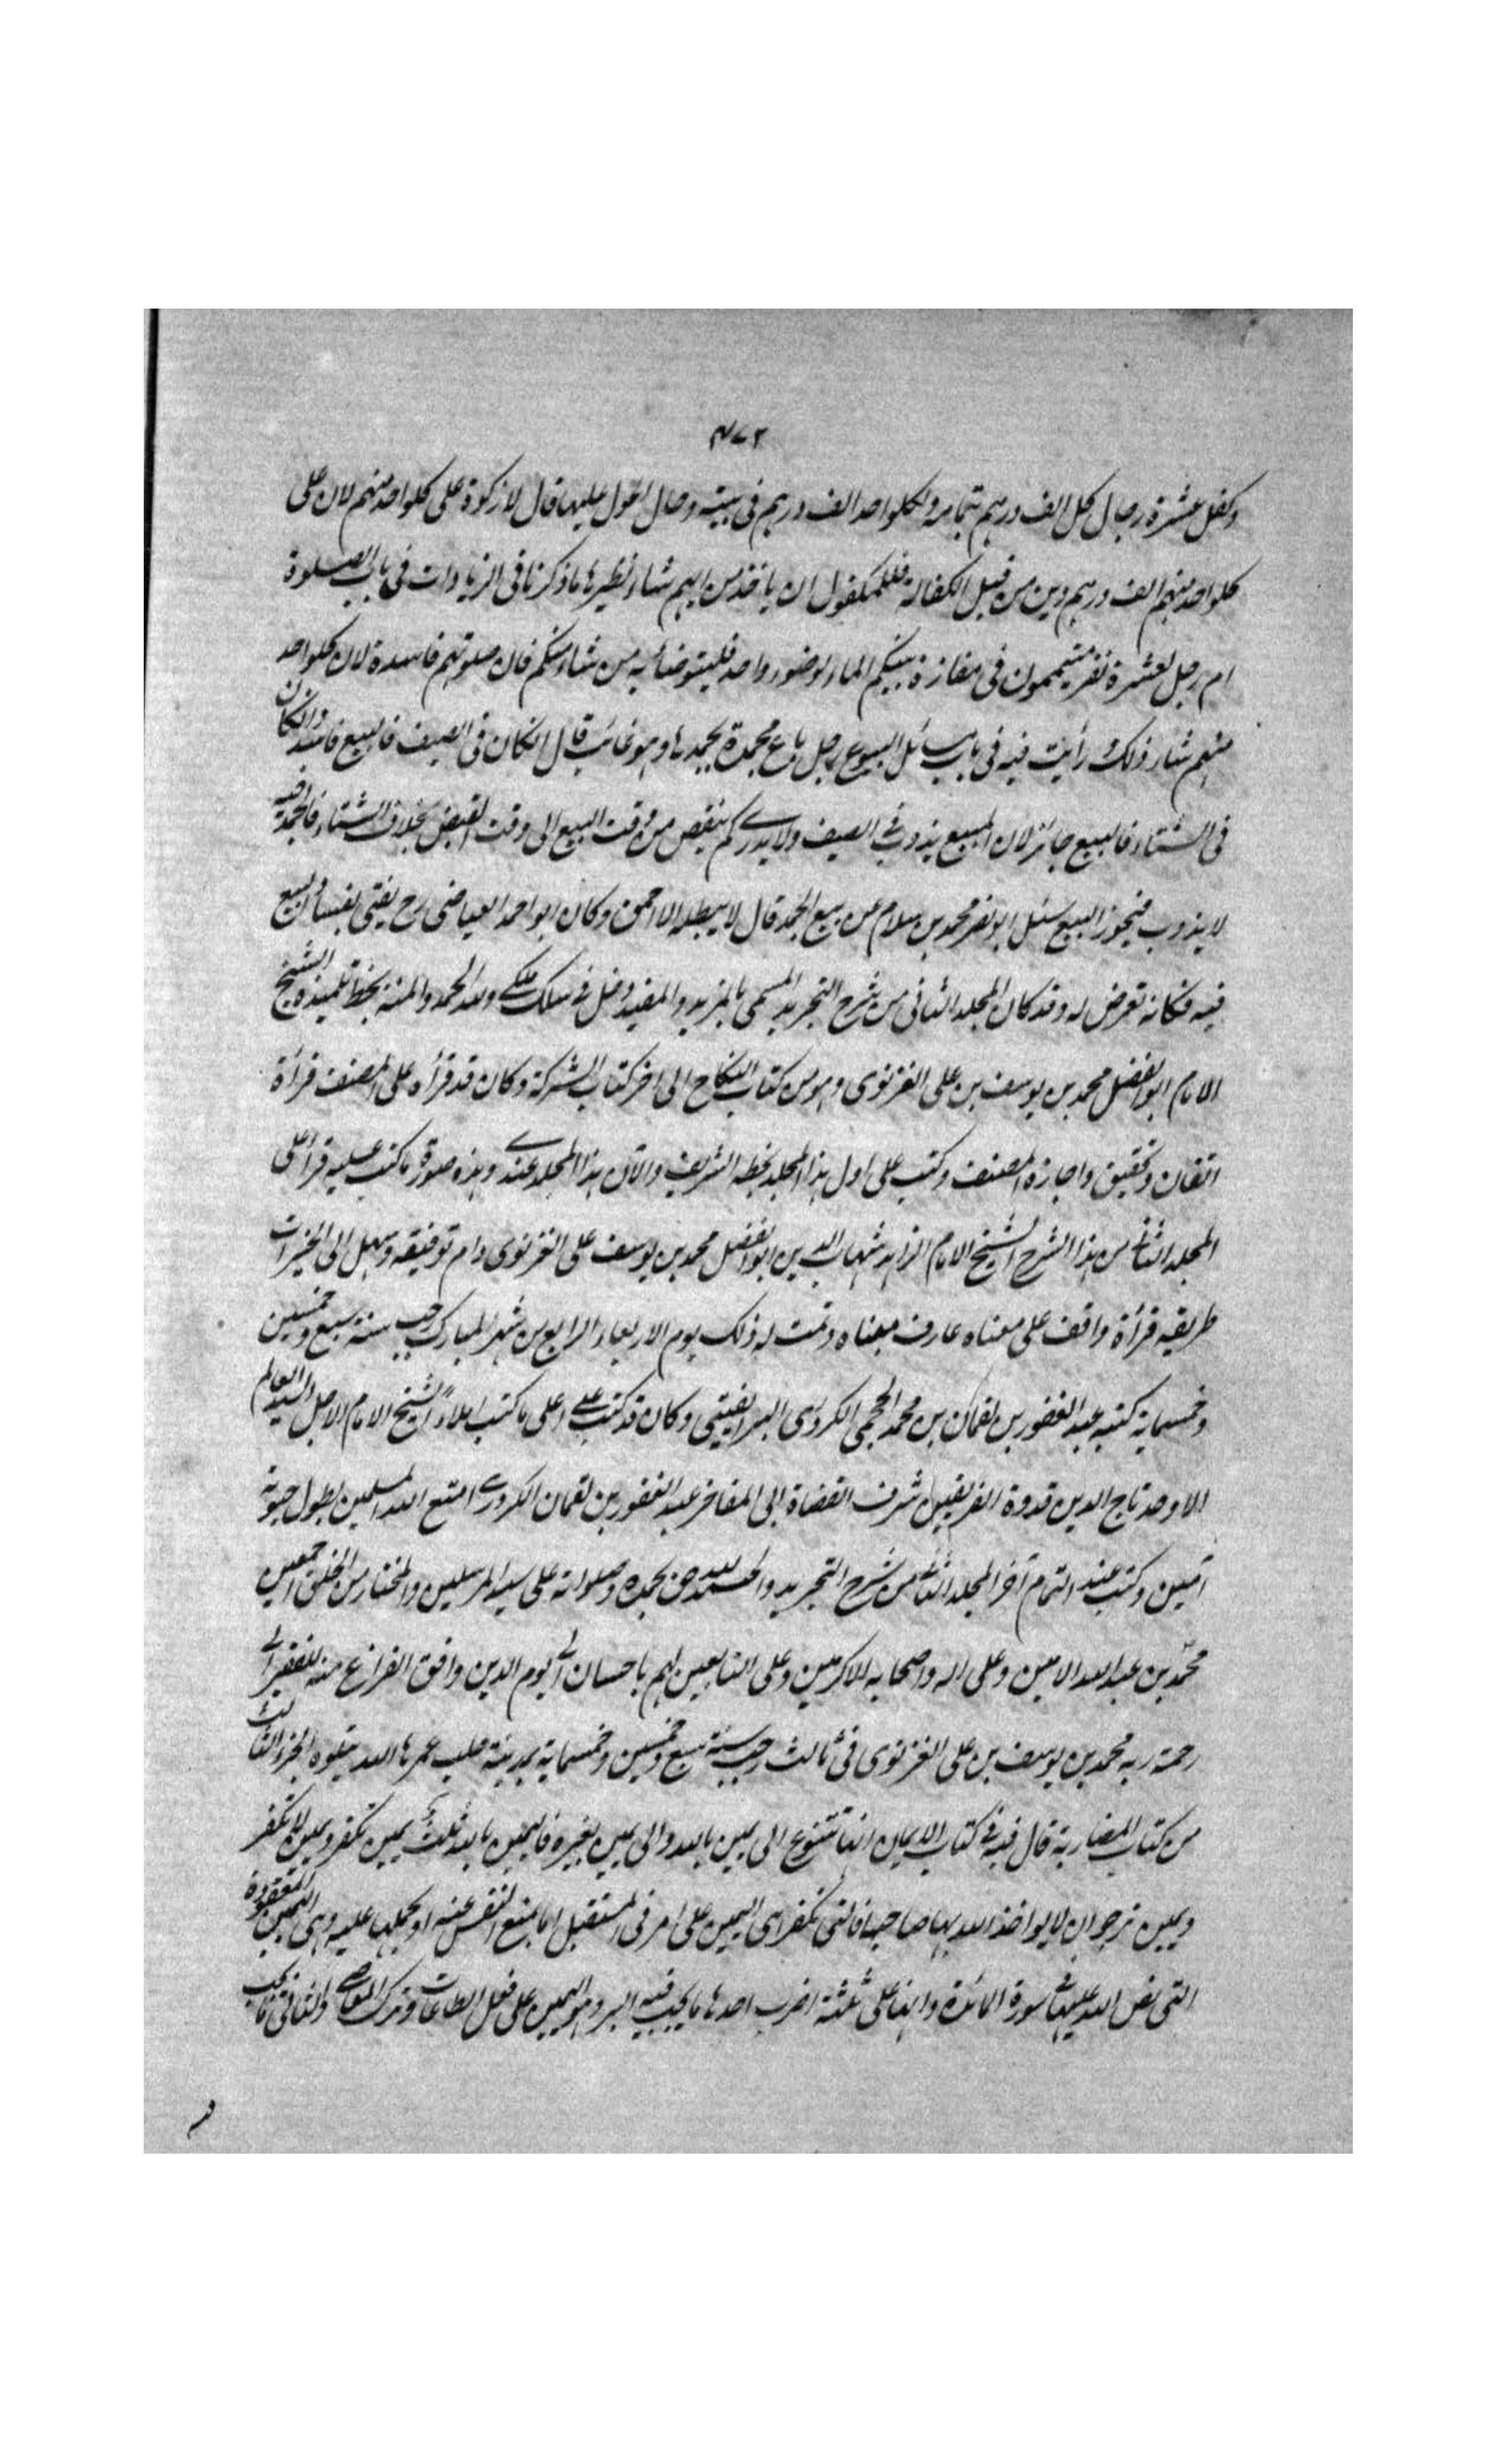 ٤٧٢
وكفل عشرة رجال كل الف درهم بتمامه ولكلواحد الف درهم فى بيته وحال الحول عليها قال لا زكوة على كلواحد منهم لان على
كلواحد منهم الف درهم دين من قبل الكفالة فللمكفول ان ياخذ من ايهم شاء ونظيرها ما ذكرنا فى الزيادات فى باب الصلوة
ام رجل لعشرة نفر متيممون فى مفازة بينكم الماء لوضوء واحد فليتوضأ به من شاء منكم فان صلوتهم فاسدة لان كلواحد
منهم شاء ذلك رأيت فيه فى باب مسائل البيوع رجل باع مجمدة بجمدها وهو غائب قال انكان فى الصيف فالبيع فاسد وانكان
فى الشتاء فالبيع جائز لان المبيع يذوب فى الصيف ولا يدرى كم ينقص من وقت البيع الى وقت القبض بخلاف الشتاء فالجمد فيه
لا يذوب فيجوز البيع سئل ابو نصر محمد بن سلام عن بيع الجمد قال لا يبطله الا احمق وكان ابو احمد العياضى رح يفتى بفساد البيع
فيه فكانه تعرض له وقد كان المجلد الثانى من شرح التجريد المسمى بالمزيد والمفيد دخل فى سلك ملكى ولله الحمد والمنة بخط تلميذه الشيخ
الامام ابو الفضل محمد بن يوسف بن على الغزنوى وهو من كتاب النكاح الى اخر كتاب الشركة وكان قد قرأه على المصنف قرأة
اتقان وتحقيق واجازه المصنف وكتب على اول هذا المجلد بخطه الشريف والآن هذا المجلد عندى وهذه صورة ما كتب عليه قرأ على
المجلد الثانى من هذا الشرح الشيخ الامام الزاهد شهاب الدين ابو الفضل محمد بن يوسف على الغزنوى دام توفيقه وسهل الى الخيرات
طريقه قرأة واقف على معناه عارف مبناه وتمت له ذلك يوم الاربعاء الرابع من شهر المبارك رجب سنة سبع وخمسين
وخمسماية كتبه عبد الغفور بن لقمان بن محمد الكردرى وكان قد كتب على اعلى ما كتب املاء الشيخ الامام الاجل السيد العالم
الاوحد تاج الدين قدوة الفريقين شرف القضاة ابى المفاخر عبد الغفور بن لقمان الكردرى امتع الله المسلمين بطول حيوته
آمين وكتب عند اتمام آخر المجلد الثانى من شرح التجريد والحمد لله حق بحمده وصلواته على سيد المرسلين والمختار من الخلق اجمعين
محمد بن عبد الله الامين وعلى اله واصحابه الاكرمين وعلى التابعين لهم باحسان الى يوم الدين وافق الفراغ منه للفقير الى
رحمة ربه محمد بن يوسف بن على الغزنوى فى ثالث رجب سنة سبع وخمسين وخمسماية بمدينة حلب عمرها الله يتلوه الجزء الثالث
من كتاب المضاربة قال فيه فى كتاب الايمان انها تتنوع الى يمين بالله والى يمين بغيره فاليمين بالله ثلث يمين تكفر ويمين لا تكفر
ويمين نرجو ان لا يواخذ الله بها صاحبها فالتى تكفر هى اليمين على امر فى المستقبل اما بمنع النفس عنه او بحملها عليه وهى اليمين المنعقدة
التى نص الله عليها فى سورة المائدة وانها على ثلثة اضرب احدها ما يجب فيه البر وهو اليمين على فعل الطاعات وترك المعاصى والثانى ما يجب
فيه